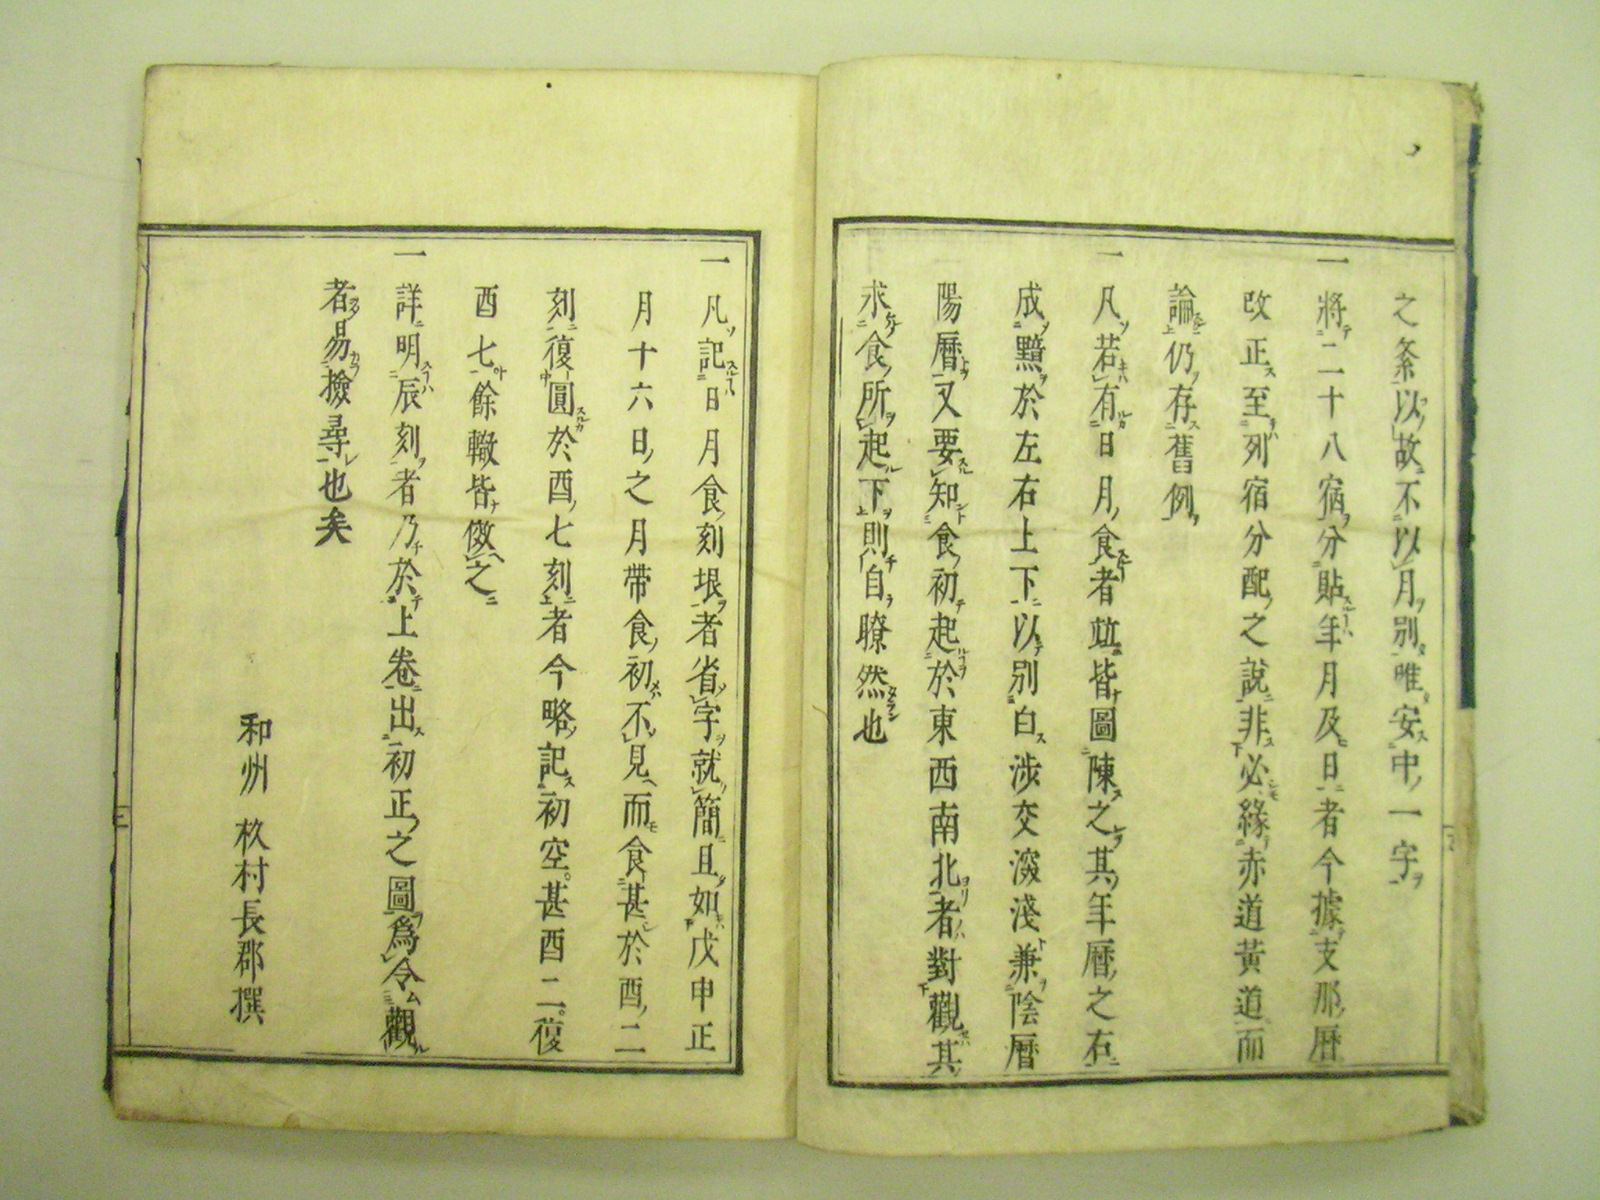 之条以故不以月別唯安中一字
一將二十八宿分貼年月及日者今據支那暦
改正至列宿分配之説非必緣赤道黄道而
論仍存舊例
一凡若有日月食者竝皆圖陳之其年暦之右
成黶於左右上下以別白涉交深淺兼陰暦
陽曆又要知食初起於東西南北者對觀其
求食所起下則自瞭然也
一凡記日月食刻垠者省字就簡且如戊申正
月十六日之月帶食初不見而食甚於酉二
刻復圓於酉七刻者今略記初空。甚酉二。復
酉七餘轍皆倣之
一詳明辰刻者乃於上卷出初正之圖爲令觀
者易撿尋也矣
和州 杦村長郡撰
三